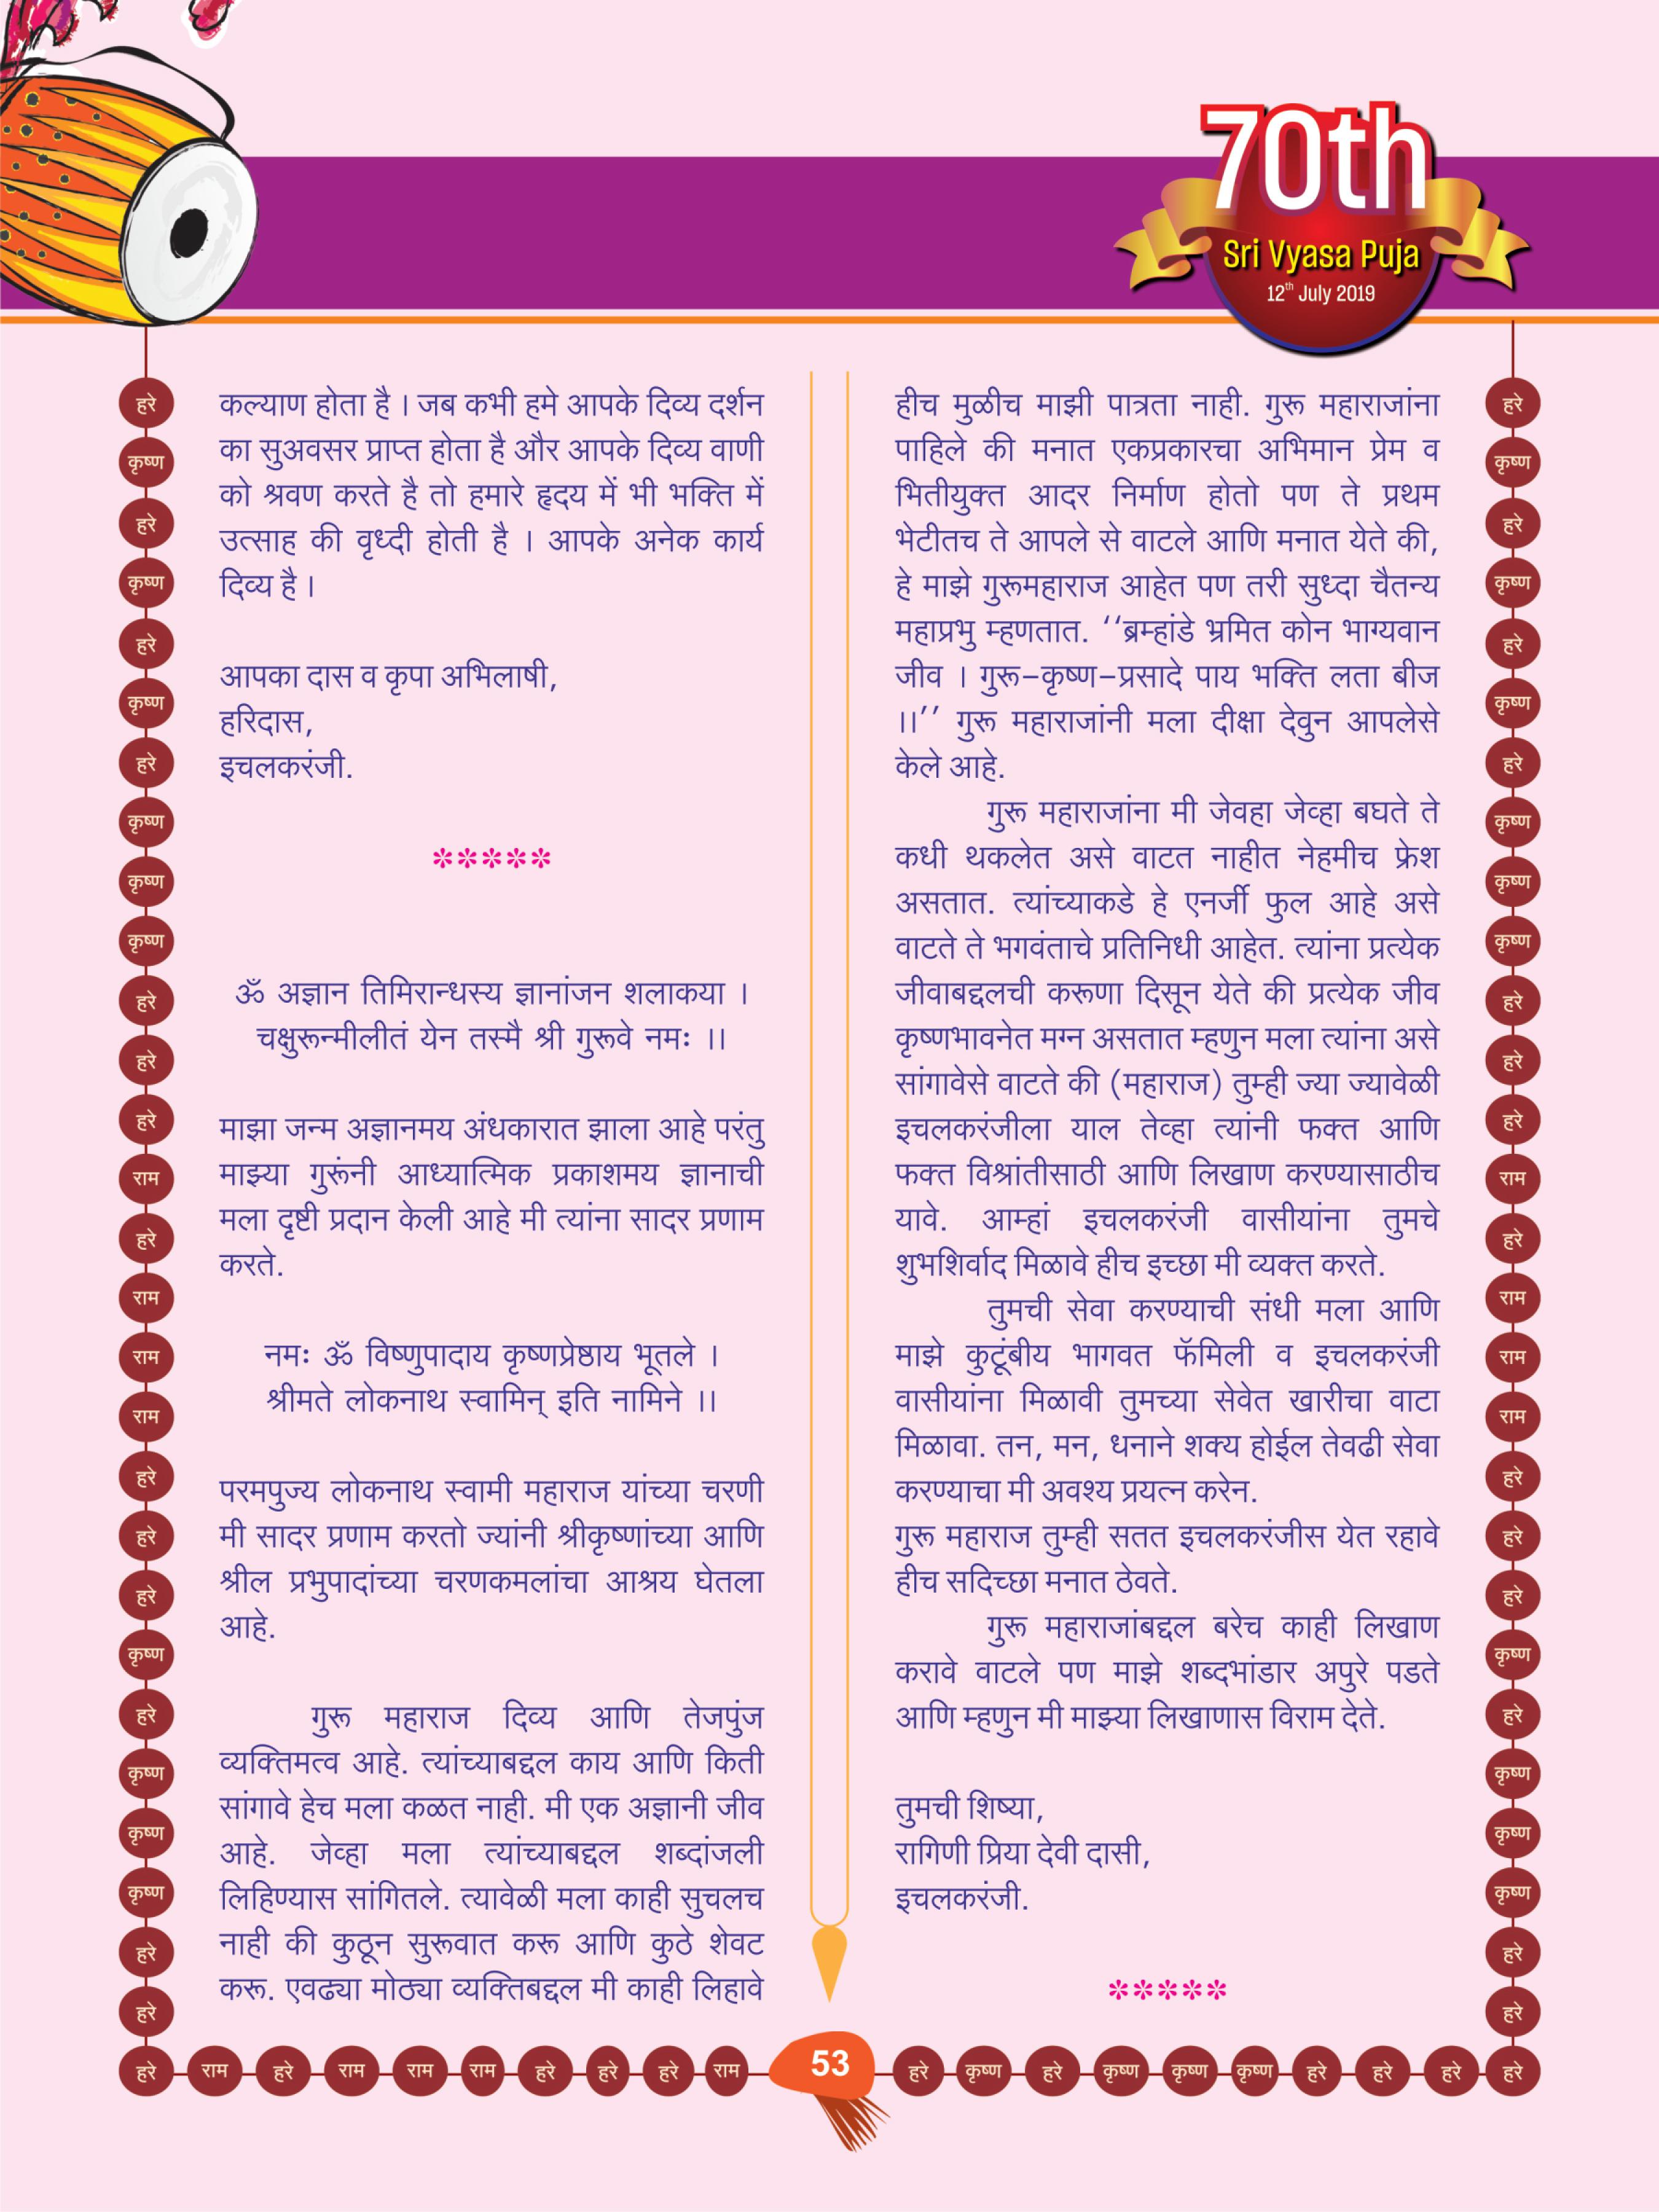 70th
Sri Vyasa Puja
12th July 2019
कल्याण होता है । जब कभी हमे आपके दिव्य दर्शन
का सुअवसर प्राप्त होता है और आपके दिव्य वाणी
को श्रवण करते है तो हमारे हृदय में भी भक्ति में
उत्साह की वृध्दी होती है । आपके अनेक कार्य
दिव्य है ।
आपका दास व कृपा अभिलाषी,
हरिदास,
इचलकरंजी.
*****
ॐ अज्ञान तिमिरान्धस्य ज्ञानांजन शलाकया ।
चक्षुरून्मीलीतं येन तस्मै श्री गुरूवे नमः ।।
माझा जन्म अज्ञानमय अंधकारात झाला आहे परंतु
माझ्या गुरूंनी आध्यात्मिक प्रकाशमय ज्ञानाची
मला दृष्टी प्रदान केली आहे मी त्यांना सादर प्रणाम
करते.
नमः ॐ विष्णुपादाय कृष्णप्रेष्ठाय भूतले ।
श्रीमते लोकनाथ स्वामिन् इति नामिने ।।
परमपुज्य लोकनाथ स्वामी महाराज यांच्या चरणी
मी सादर प्रणाम करतो ज्यांनी श्रीकृष्णांच्या आणि
श्रील प्रभुपादांच्या चरणकमलांचा आश्रय घेतला
आहे.
गुरू महाराज दिव्य आणि तेजपुंज
व्यक्तिमत्व आहे. त्यांच्याबद्दल काय आणि किती
सांगावे हेच मला कळत नाही. मी एक अज्ञानी जीव
आहे. जेव्हा मला त्यांच्याबद्दल शब्दांजली
लिहिण्यास सांगितले. त्यावेळी मला काही सुचलच
नाही की कुठून सुरूवात करू आणि कुठे शेवट
करू. एवढ्या मोठ्या व्यक्तिबद्दल मी काही लिहावे
हीच मुळीच माझी पात्रता नाही. गुरू महाराजांना
पाहिले की मनात एकप्रकारचा अभिमान प्रेम व
भितीयुक्त आदर निर्माण होतो पण ते प्रथम
भेटीतच ते आपले से वाटले आणि मनात येते की,
हे माझे गुरूमहाराज आहेत पण तरी सुध्दा चैतन्य
महाप्रभु म्हणतात. ‘‘ब्रम्हांडे भ्रमित कोन भाग्यवान
जीव । गुरू–कृष्ण–प्रसादे पाय भक्ति लता बीज
।।’’ गुरू महाराजांनी मला दीक्षा देवुन आपलेसे
केले आहे.
गुरू महाराजांना मी जेवहा जेव्हा बघते ते
कधी थकलेत असे वाटत नाहीत नेहमीच फ्रेश
असतात. त्यांच्याकडे हे एनर्जी फुल आहे असे
वाटते ते भगवंताचे प्रतिनिधी आहेत. त्यांना प्रत्येक
जीवाबद्दलची करूणा दिसून येते की प्रत्येक जीव
कृष्णभावनेत मग्न असतात म्हणुन मला त्यांना असे
सांगावेसे वाटते की (महाराज) तुम्ही ज्या ज्यावेळी
इचलकरंजीला याल तेव्हा त्यांनी फक्त आणि
फक्त विश्रांतीसाठी आणि लिखाण करण्यासाठीच
यावे. आम्हां इचलकरंजी वासीयांना तुमचे
शुभशिर्वाद मिळावे हीच इच्छा मी व्यक्त करते.
तुमची सेवा करण्याची संधी मला आणि
माझे कुटूंबीय भागवत फॅमिली व इचलकरंजी
वासीयांना मिळावी तुमच्या सेवेत खारीचा वाटा
मिळावा. तन, मन, धनाने शक्य होईल तेवढी सेवा
करण्याचा मी अवश्य प्रयत्न करेन.
गुरू महाराज तुम्ही सतत इचलकरंजीस येत रहावे
हीच सदिच्छा मनात ठेवते.
गुरू महाराजांबद्दल बरेच काही लिखाण
करावे वाटले पण माझे शब्दभांडार अपुरे पडते
आणि म्हणुन मी माझ्या लिखाणास विराम देते.
तुमची शिष्या,
रागिणी प्रिया देवी दासी,
इचलकरंजी.
*****
हरे
कृष्ण
हरे
कृष्ण
हरे
कृष्ण
हरे
कृष्ण
कृष्ण
कृष्ण
हरे
हरे
हरे
राम
हरे
राम
राम
राम
हरे
हरे
हरे
कृष्ण
हरे
कृष्ण
कृष्ण
कृष्ण
हरे
हरे
हरे
कृष्ण
हरे
कृष्ण
हरे
कृष्ण
हरे
कृष्ण
कृष्ण
कृष्ण
हरे
हरे
हरे
राम
हरे
राम
राम
राम
हरे
हरे
हरे
कृष्ण
हरे
कृष्ण
कृष्ण
कृष्ण
हरे
हरे
हरे राम हरे राम राम राम हरे हरे हरे राम 53 हरे कृष्ण हरे कृष्ण कृष्ण कृष्ण हरे हरे हरे हरे